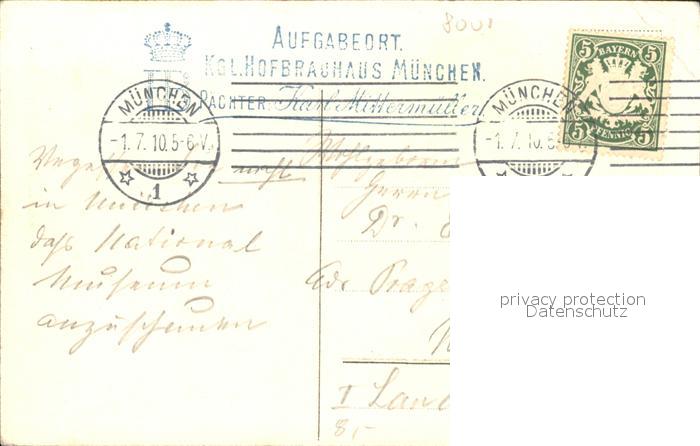 8001
AUFGABEORT.
KGL. HOFBRÄUHAUS MÜNCHEN.
PÄCHTER: Karl Mittermüller
HB
MÜNCHEN
-1.7.10.5-6V.
1
MÜNCHEN
-1.7.10.5-6V.
BAYERN
5 5
5 PFENNIG 5
nicht
in München
das National
Museum
anzuschauen
Wohlgeboren
Herrn
Dr.
I
8,-
privacy protection
Datenschutz